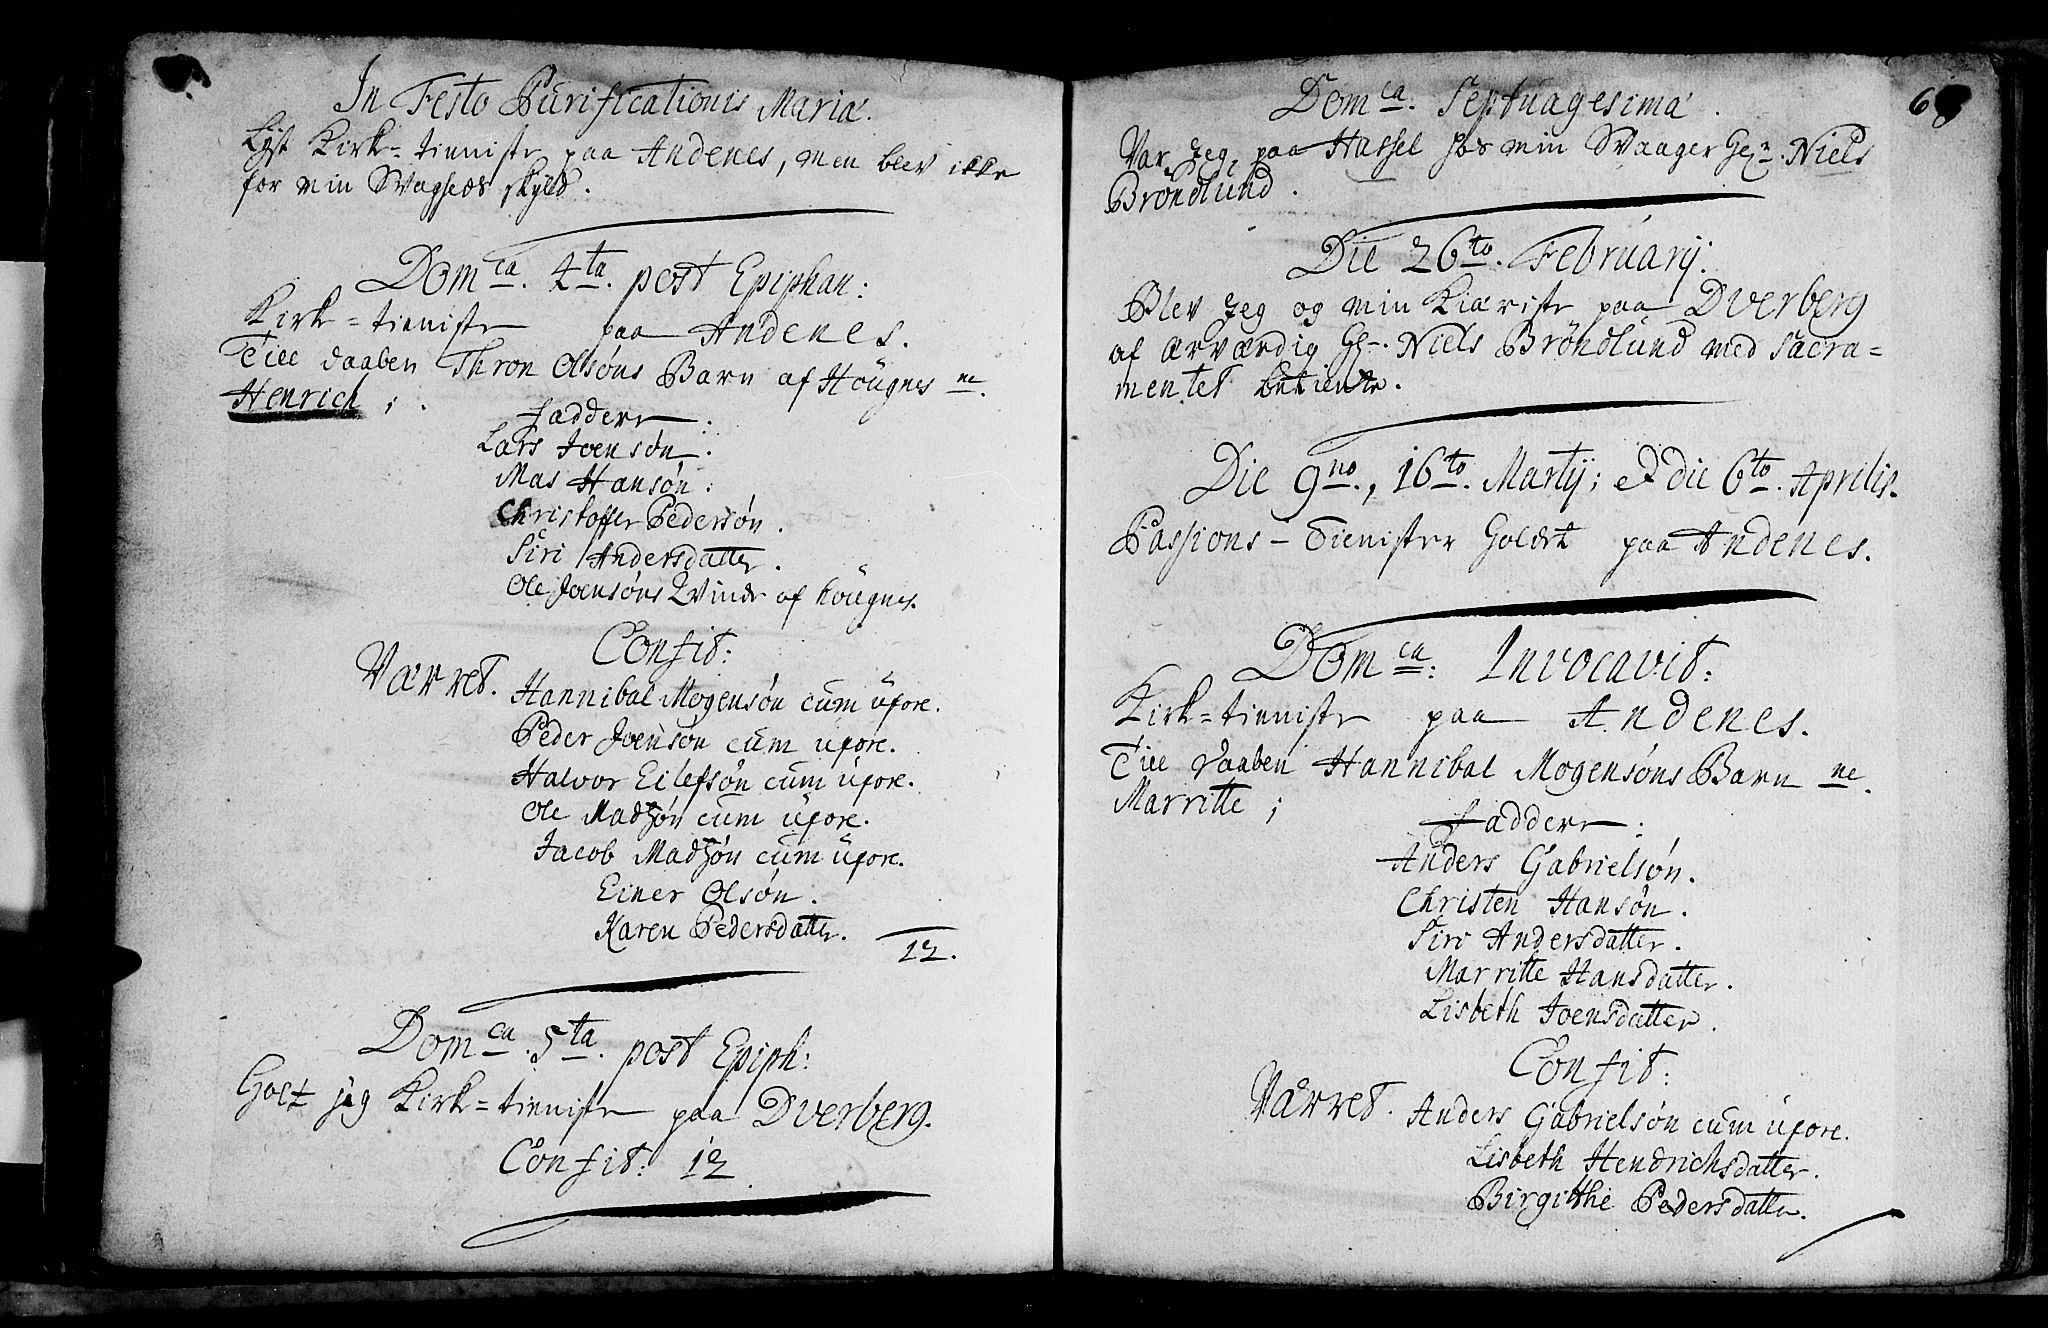 In Festo Purificationis Mariæ.
Lyst Kirk-tieniste paa Andenes, men blev ikke
for min Svagheds skyld.
Domca. 4ta. post Epiphan:
Kirk-tieniste paa Andenes.
Till daaben Thron Olsøns Barn af Höugnes ne.
Henrich;.
Faddere:
Lars Joensøn.
Mas Hansøn.
Christoffer Pedersøn.
Siri Andersdatter.
Ole Joensøns Qvinde af höugnes.
Confit:
Værret. Hannibal Mogensøn cum uxore.
Peder Joensøn cum uxore.
Halvor Eilefsøn cum uxore.
Ole Madsøn cum uxore.
Jacob Madsøn cum uxore.
Einer Olsøn.
Karen Pedersdatter.
12.
Domca. 5ta. post Epiph:
Holt jeg Kirk-tieniste paa Dverberg.
Confit: 12
6
Domca. Septuagesima.
Var Jeg paa Hassel hos min Svaager Hr. Niels
Bröndlund.
Die 26to. Februarij.
Blev Jeg og min Kiæriste paa Dverberg
af ærværdig Hr. Niels Bröndlund med Sacra=
mentet betiente.
Die 9no., 16to. Martij; et die 6to. Aprilis.
Passions-Tienister holdet paa Andenes.
Domca: Invocavit:
Kirk-tieniste paa Andenes.
Till daaben Hannibal Mogensøns Barn ne.
Marritte;
Faddere:
Anders Gabrielsøn.
Christen Hansøn.
Siri Andersdatter.
Marritte Hansdatter.
Lisbeth Joensdatter.
Confit:
Værret. Anders Gabrielsøn cum uxore.
Lisbeth Hendrichsdatter.
Birgitthe Pedersdatter.